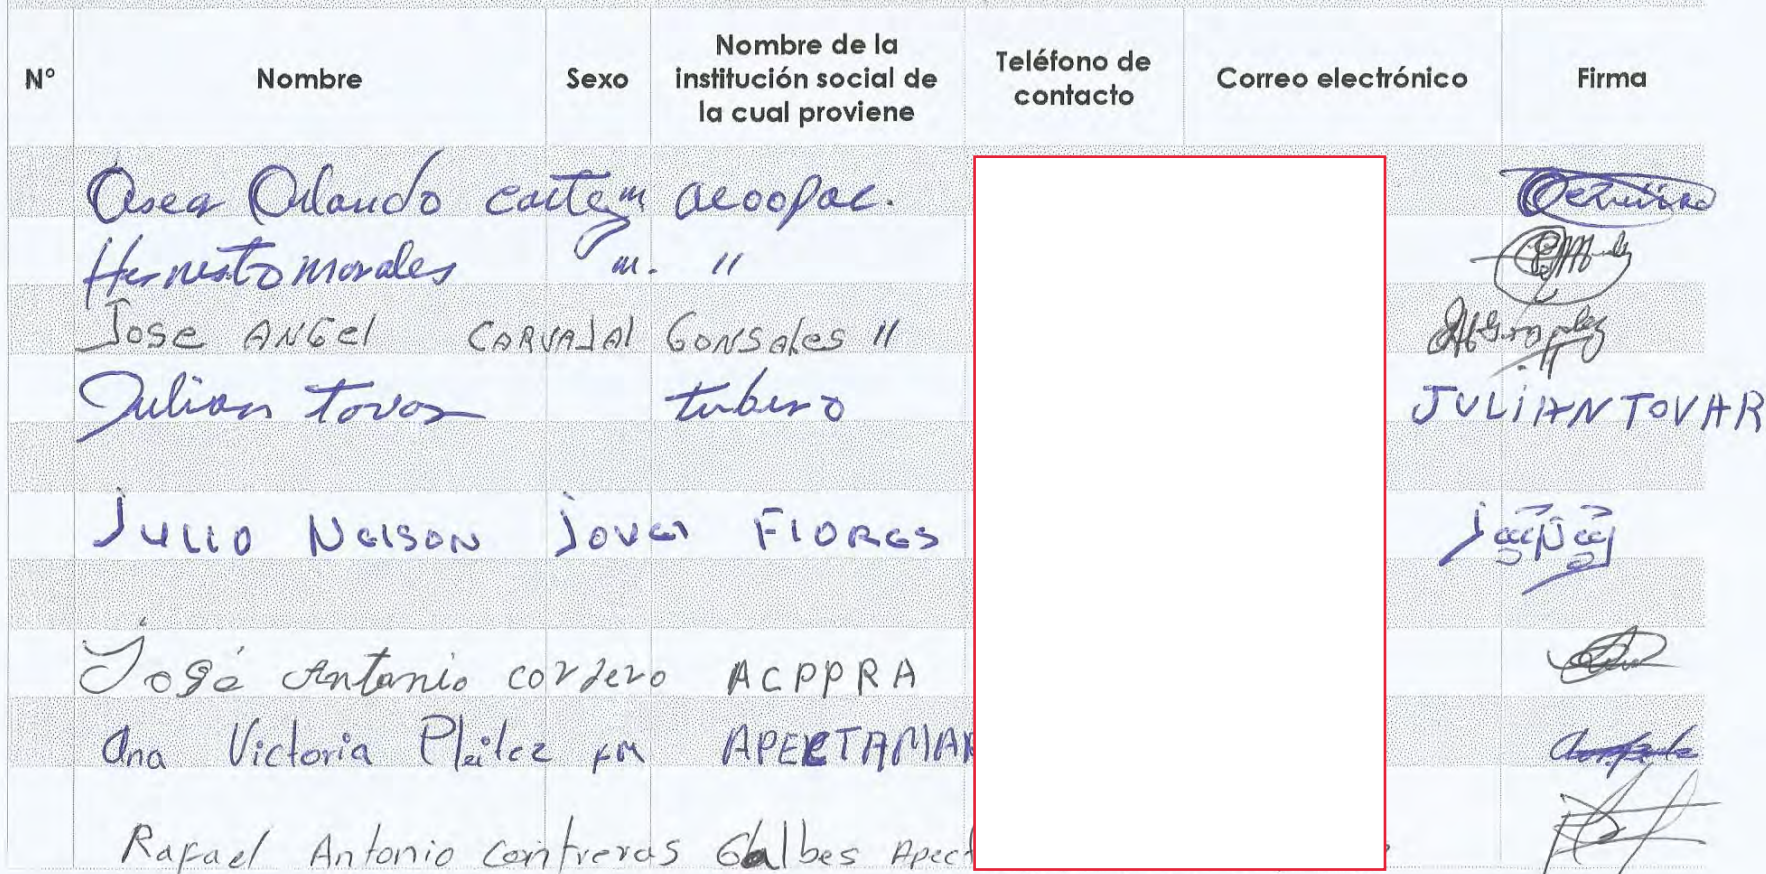 N° Nombre Sexo Nombre de la institución social de la cual proviene Teléfono de contacto Correo electrónico Firma
Orlando m acoopac.
Hernesto morales m. "
Jose ANGel CARVAJAl GonSales "
Julian Tovar tubero JULiAN TOVAR
JULIO NelSON JOVel FlOReS
José Antonio cordero ACPPRA
Ana Victoria Pleitez FM APECTAMAR
Rafael Antonio Contreras Apect